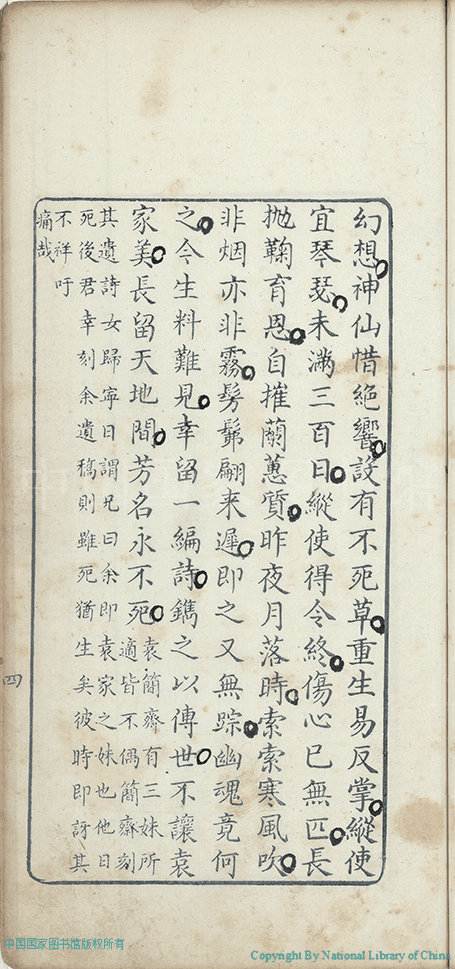 幻想神仙惜絕響設有不死草重生易反掌縱使
宜琴瑟未滿三百日縱使得令終傷心已無匹長
抛鞠育恩自摧蘭蕙質昨夜月落時索索寒風吹
非烟亦非霧髣髴翩来遲即之又無踪幽魂竟何
之今生料難見幸留一編詩鐫之以傳世不讓袁
家美長留天地間芳名永不死袁簡齋有三妹所
適皆不偶簡齋刻
其遺詩女歸寧日謂兄曰余即袁家之妹也他日
死後君幸刻余遺稿則雖死猶生矣彼時即訝其
不祥吁
痛哉
四
中国国家图书馆版权所有
Copyright By National Library of China